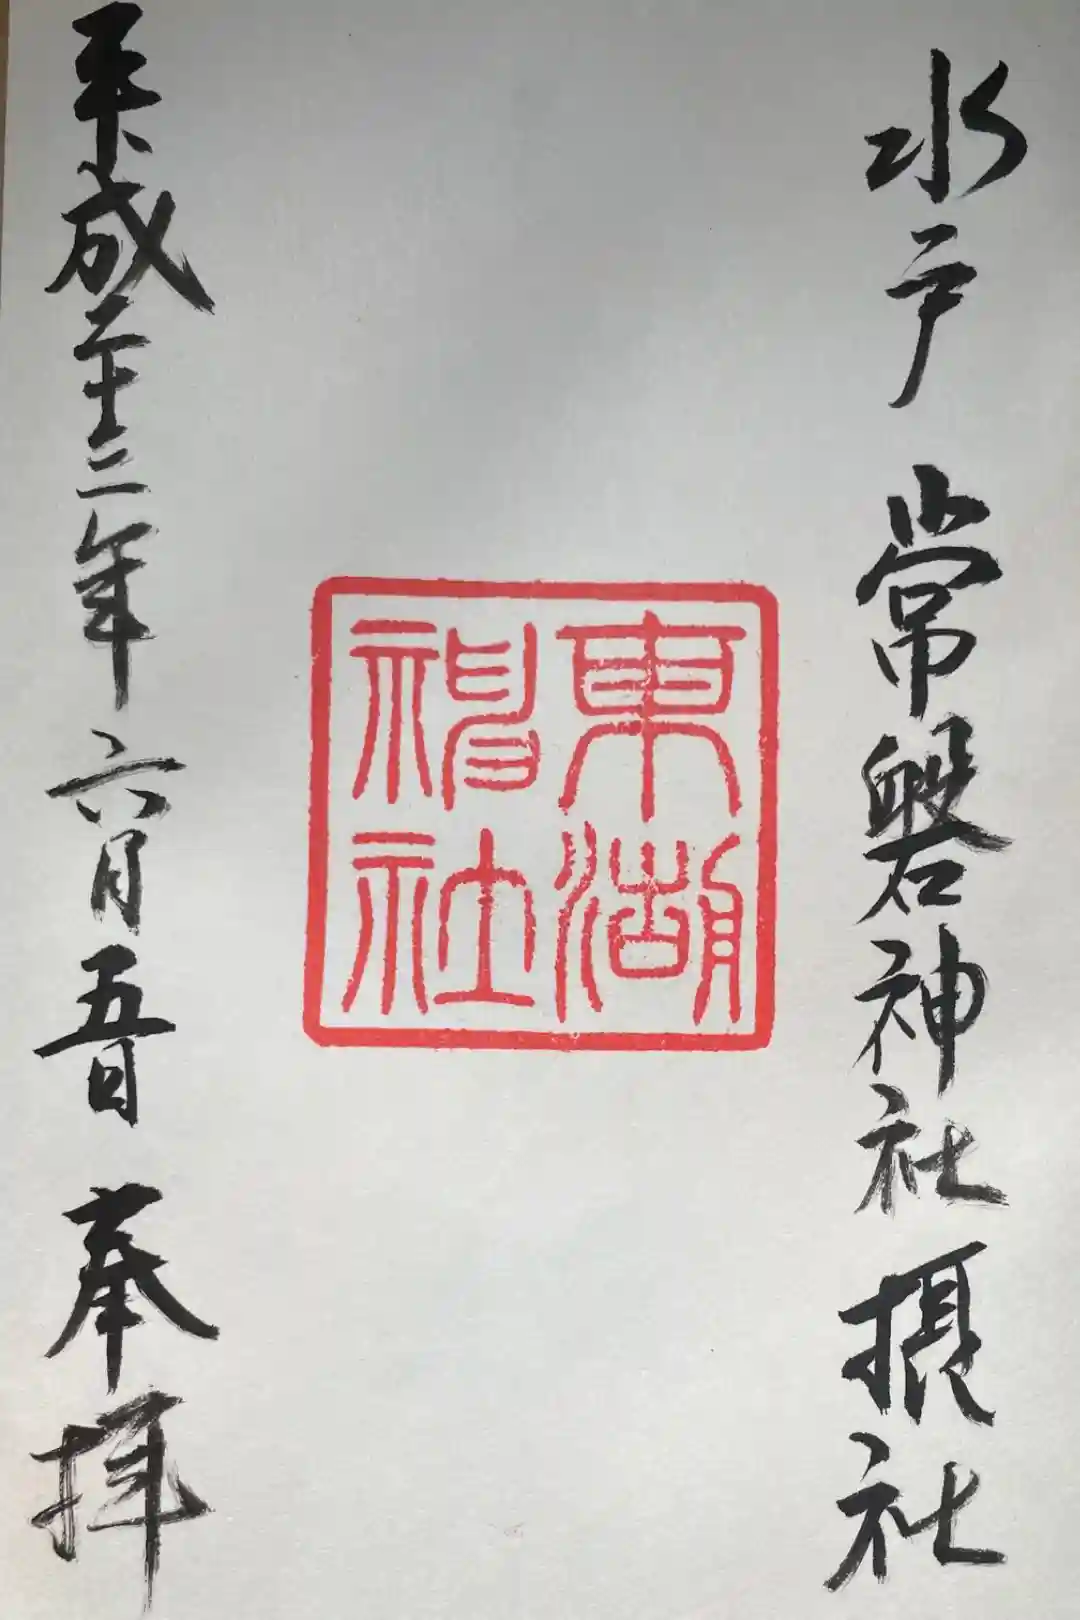 水戸 常磐神社 摂社
東湖
神社
平成二十二年 六月五日 奉拝